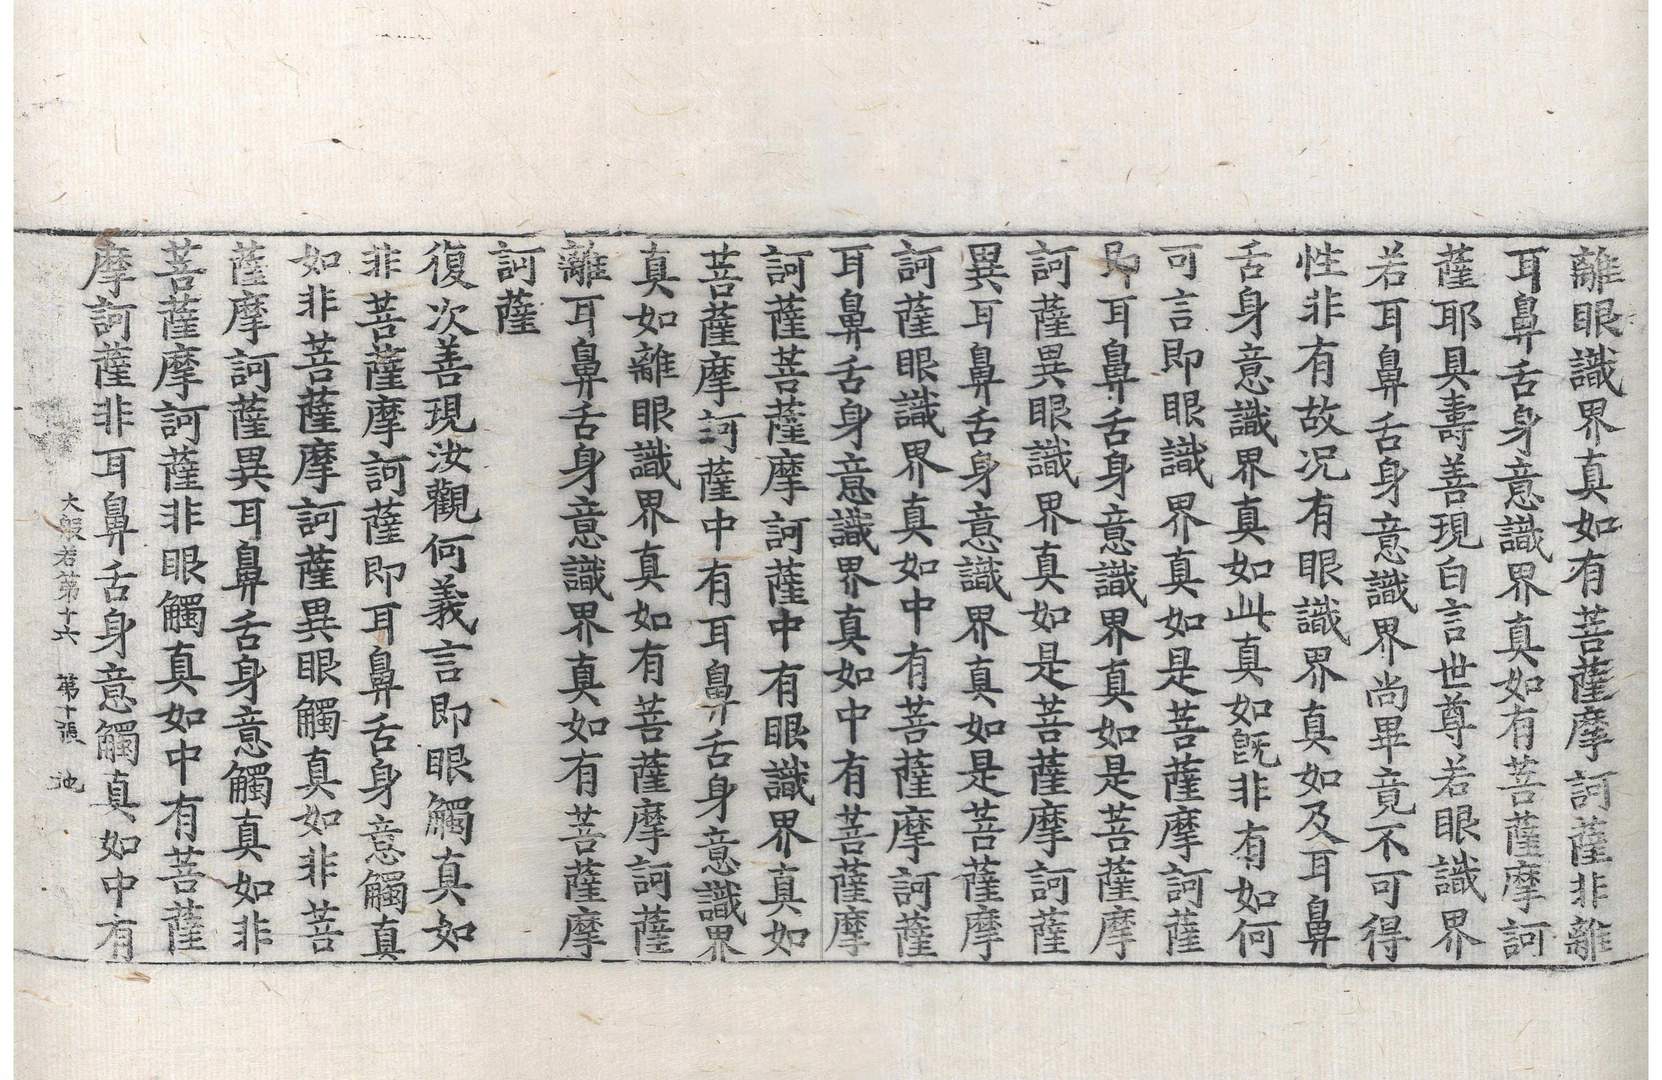 離眼識界真如有菩薩摩訶薩非離
耳鼻舌身意識界真如有菩薩摩訶
薩耶具壽善現白言世尊若眼識界
若耳鼻舌身意識界尚畢竟不可得
性非有故况有眼識界真如及耳鼻
舌身意識界真如此真如旣非有如何
可言即眼識界真如是菩薩摩訶薩
即耳鼻舌身意識界真如是菩薩摩
訶薩異眼識界真如是菩薩摩訶薩
異耳鼻舌身意識界真如是菩薩摩
訶薩眼識界真如中有菩薩摩訶薩
耳鼻舌身意識界真如中有菩薩摩
訶薩菩薩摩訶薩中有眼識界真如
菩薩摩訶薩中有耳鼻舌身意識界
真如離眼識界真如有菩薩摩訶薩
離耳鼻舌身意識界真如有菩薩摩
訶薩
復次善現汝觀何義言即眼觸真如
非菩薩摩訶薩即耳鼻舌身意觸真
如非菩薩摩訶薩異眼觸真如非菩
薩摩訶薩異耳鼻舌身意觸真如非
菩薩摩訶薩非眼觸真如中有菩薩
摩訶薩非耳鼻舌身意觸真如中有
大般若第十六 第十張 池